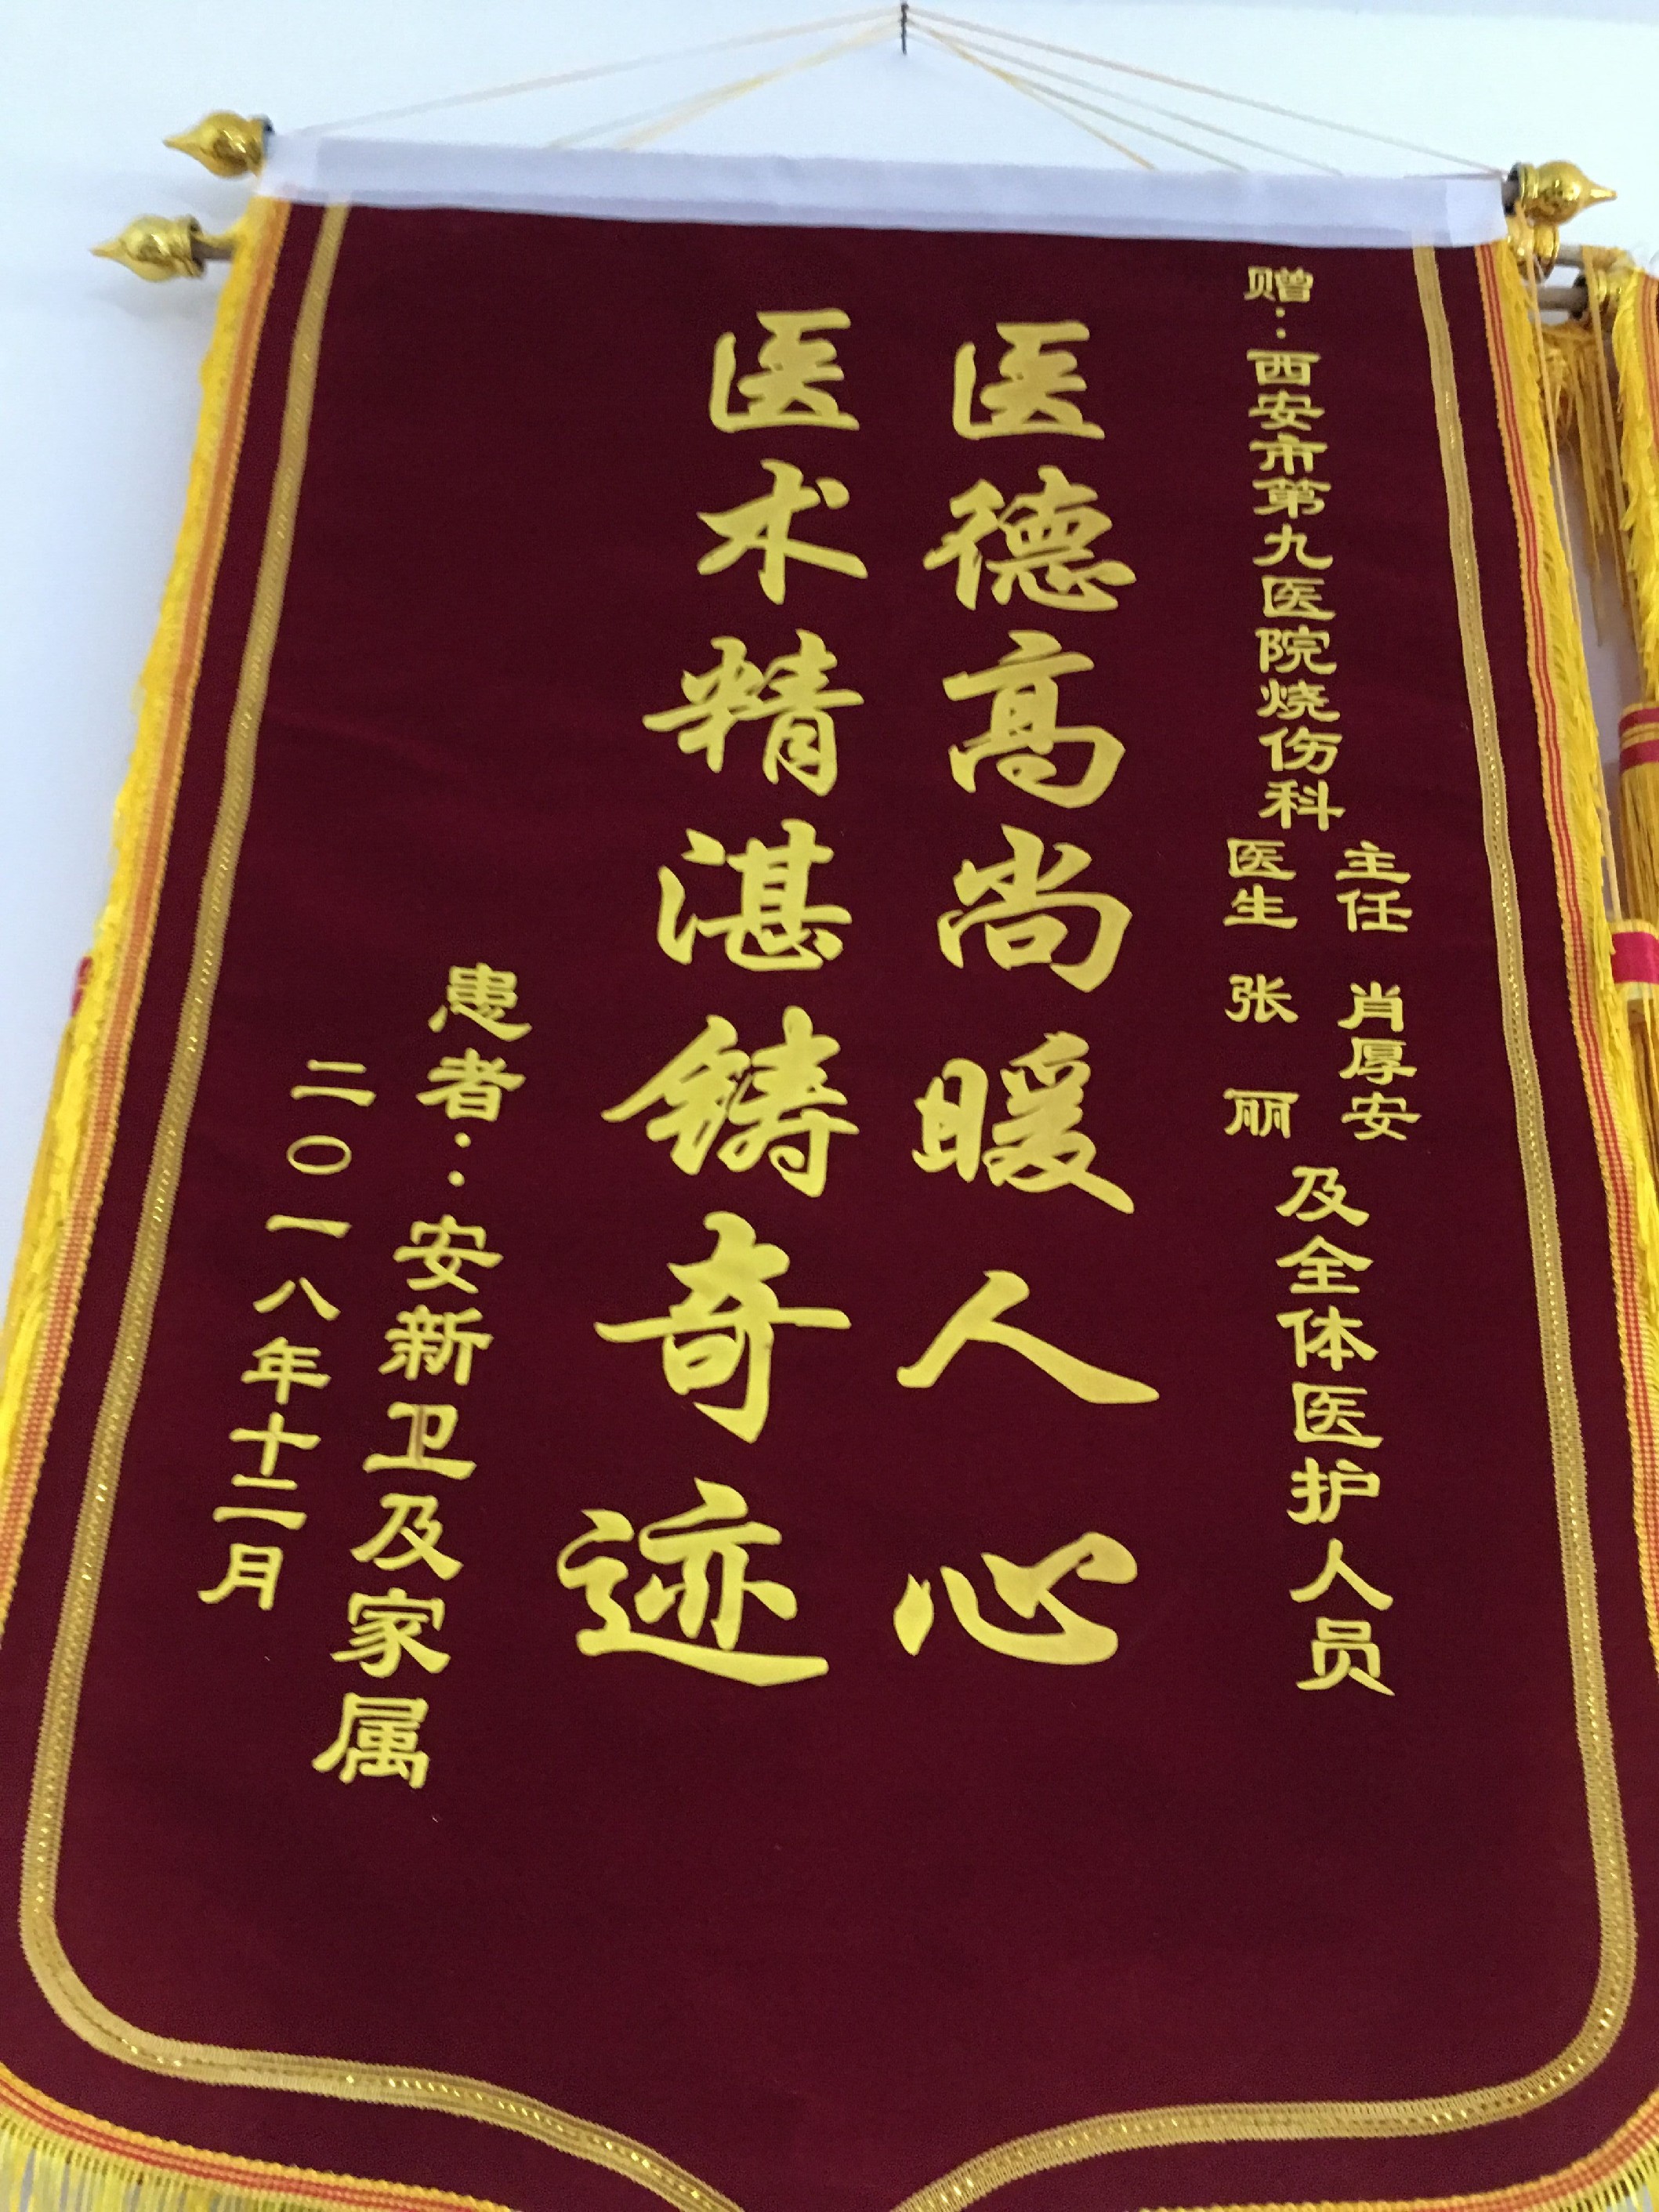 赠：西安市第九医院烧伤科
主任 肖厚安
医生 张丽
及全体医护人员
医德高尚暖人心
医术精湛铸奇迹
患者：安新卫及家属
二〇一八年十二月